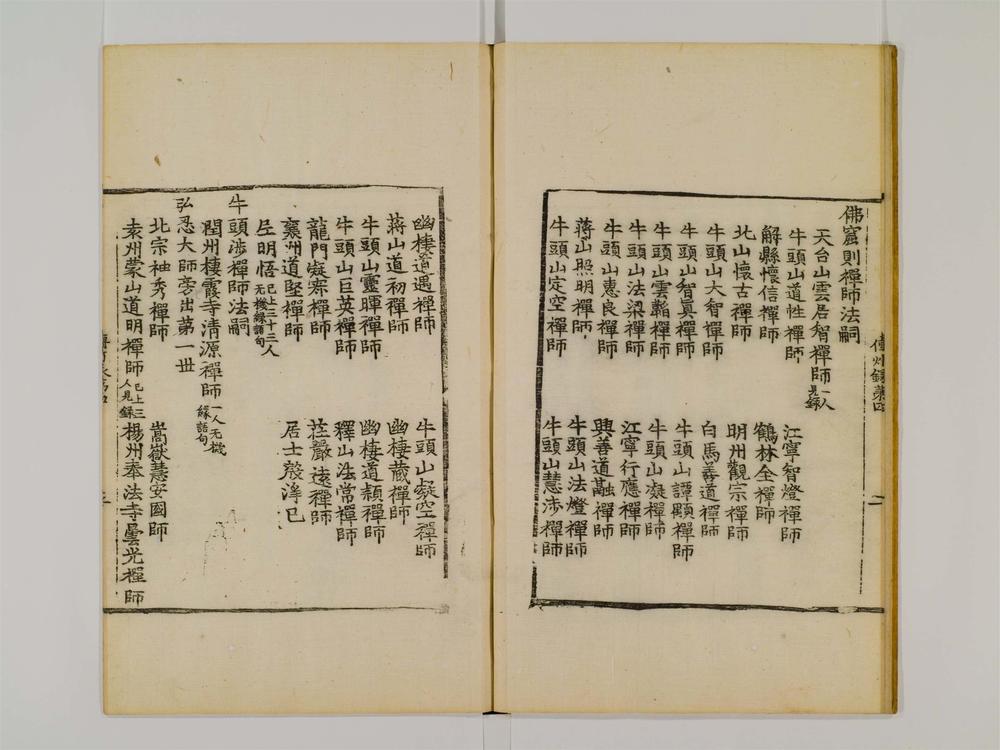 佛窟則禪師法嗣
天台山雲居智禪師一人見錄
牛頭山道性禪師 江寧智燈禪師
解縣懷信禪師 鶴林全禪師
北山懷古禪師 明州觀宗禪師
牛頭山大智禪師 白馬善道禪師
牛頭山智眞禪師 牛頭山譚顒禪師
牛頭山雲韜禪師 牛頭山凝禪師
牛頭山法梁禪師 江寧行應禪師
牛頭山惠良禪師 興善道融禪師
蔣山照明禪師 牛頭山法燈禪師
牛頭山定空禪師 牛頭山慧涉禪師
傳灯錄苐四
二
幽棲道遇禪師 牛頭山凝空禪師
蔣山道初禪師 幽棲藏禪師
牛頭山靈暉禪師 幽棲道顈禪師
牛頭山巨英禪師 釋山法常禪師
龍門凝寂禪師 莊嚴遠禪師
襄州道堅禪師 居士殷淨已
尼明悟已上三十三人无機緣語句
牛頭涉禪師法嗣
潤州棲霞寺清源禪師一人无機緣語句
弘忍大師旁出苐一世
北宗神秀禪師 嵩嶽慧安國師
袁州蒙山道明禪師已上三人見錄 揚州奉法寺曇光禪師